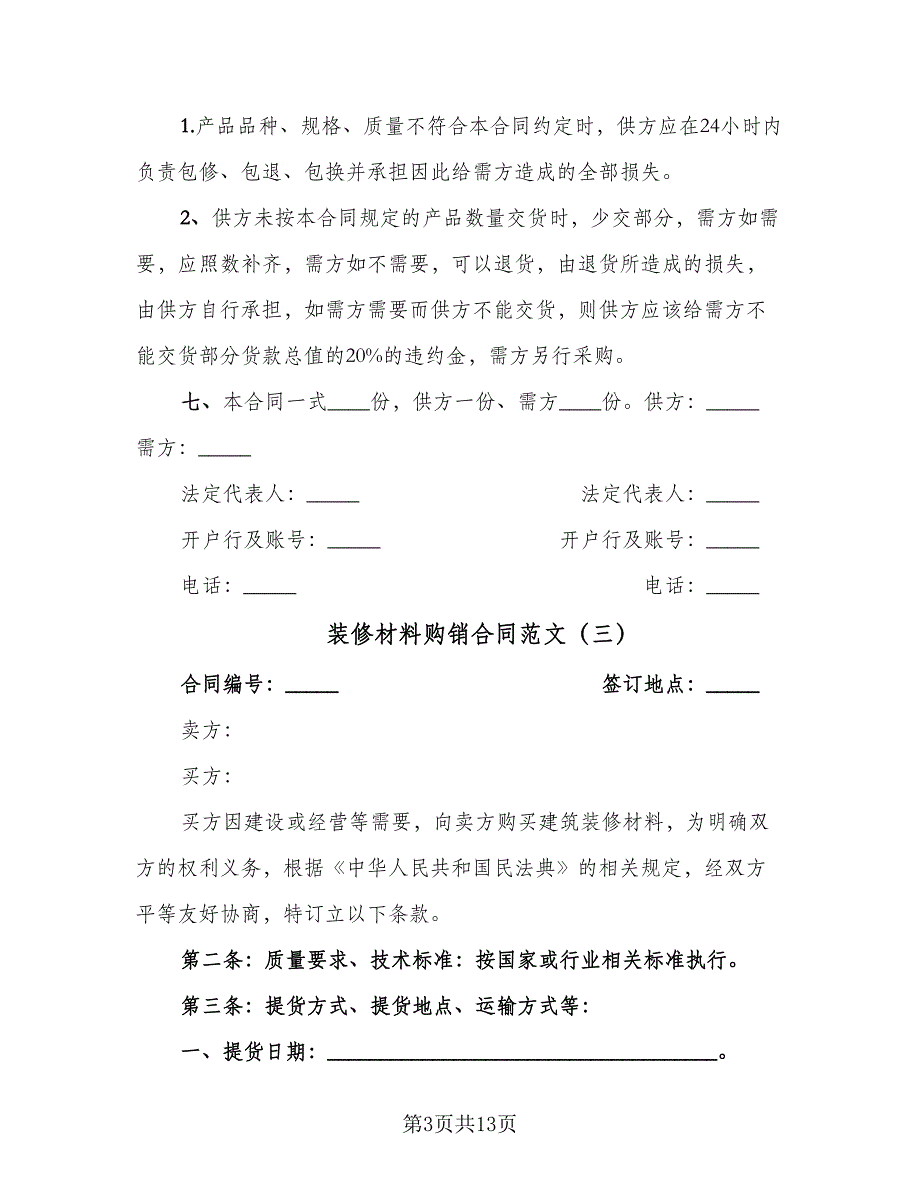 1.产品品种、规格、质量不符合本合同约定时，供方应在24小时内
负责包修、包退、包换并承担因此给需方造成的全部损失。
2、供方未按本合同规定的产品数量交货时，少交部分，需方如需
要，应照数补齐，需方如不需要，可以退货，由退货所造成的损失，
由供方自行承担，如需方需要而供方不能交货，则供方应该给需方不
能交货部分货款总值的20%的违约金，需方另行采购。
七、本合同一式____份，供方一份、需方____份。供方：_____
需方：_____
法定代表人：_____ 法定代表人：_____
开户行及账号：_____ 开户行及账号：_____
电话：_____ 电话：_____
装修材料购销合同范文（三）
合同编号：_____ 签订地点：_____
卖方：
买方：
买方因建设或经营等需要，向卖方购买建筑装修材料，为明确双
方的权利义务，根据《中华人民共和国民法典》的相关规定，经双方
平等友好协商，特订立以下条款。
第二条：质量要求、技术标准：按国家或行业相关标准执行。
第三条：提货方式、提货地点、运输方式等：
一、提货日期：_____________________________________。
第3页共13页